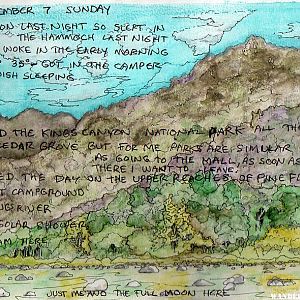 EMBER 7 SUNDAY
ON LAST NIGHT SO SLEPT IN
THE HAMMOCK LAST NIGHT
WOKE IN THE EARLY MORNING
35° & GOT IN THE CAMPER
ISH SLEEPING
D THE KINGS CANYON NATIONAL PARK ALL THE
CEDAR GROVE BUT FOR ME PARKS ARE SIMILAR
AS GOING TO THE MALL, AS SOON AS
THERE I WANT TO LEAVE.
ED THE DAY ON THE UPPER REACHES OF PINE FL
T CAMPGROUND
RIVER
SOLAR SHOWER
AM HERE
JUST ME AND THE FULL MOON HERE